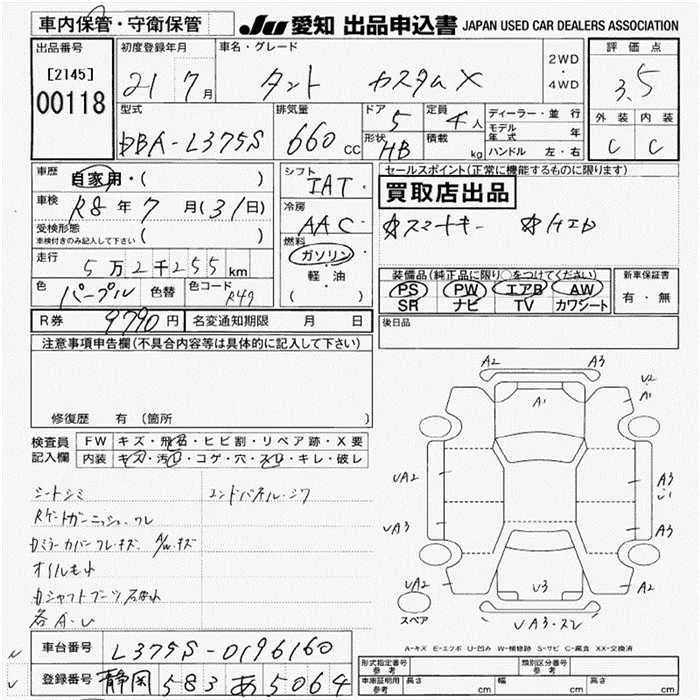 車内保管・守衛保管 JU 愛知 出品申込書 JAPAN USED CAR DEALERS ASSOCIATION
出品番号 初度登録年月 車名・グレード 2WD・4WD 評価点
[2145] 21 7月 タント カスタムX 3.5
00118
型式 排気量 ドア 定員 ディーラー・並行 外装 内装
DBA-L375S 660cc 5 4人 モデル年式 年 C C
形状 HB 積載 kg ハンドル 左・右
車歴 自家用・( ) シフト IAT セールスポイント(正常に機能するものに限ります)
車検 R8年7月(31日) 冷房 AAC 買取店出品
受検形態 ( ) ☆スマートキー ☆HID
車検付きのみ記入して下さい
燃料 ガソリン 軽・油 ( )
走行 5万2千255km
装備品(純正品に限り○をつけてください) 新車保証書
色 パープル 色替 色コード R47 PS PW エアB AW 有・無
SR ナビ TV カワシート
R券 9790円 名変通知期限 月 日 後日品
注意事項申告欄(不具合内容等は具体的に記入して下さい)
修復歴 有 (箇所 )
検査員記入欄 FW キズ・飛石・ヒビ割・リペア跡・X要
内装 キズ・汚れ・コゲ・穴・スレ・キレ・破レ
シートシミ エンドパネル・シワ
Rゲートガーニッシュ・ワレ
ミラーカバーワレ・キズ A/Wキズ
オイルもれ
シャフトブーツ
各A・U
A2 A3
A1 U2
A1
UA2 A3
UA3 A3
UA2 U3 A2
スペア
UA3・
A-キズ E-エクボ U-凹み W-補修跡 S-サビ C-腐食 XX-交換済
車台番号 L375S-0196160
登録番号 静岡 583 あ 5064
形式指定番号 参考 類別区分番号 参考
車庫証明用 参考 長さ cm 幅 cm 高さ cm